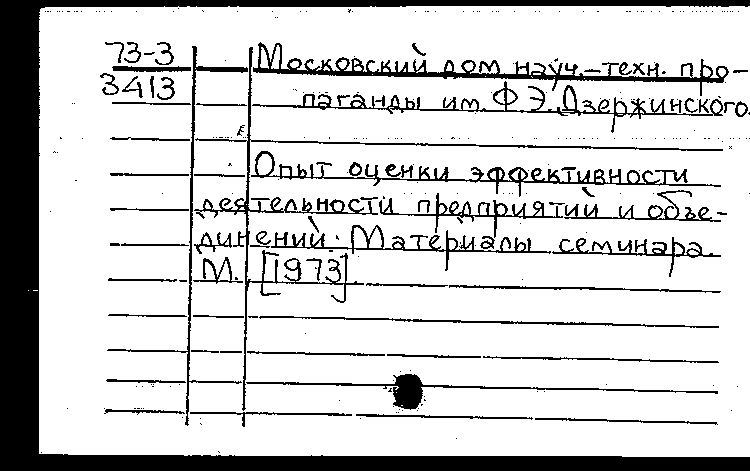 73-3 Московский дом науч.-техн. про-
3413 паганды им. Ф.Э.Дзержинского.
Опыт оценки эффективности
деятельности предприятий и объе-
динений. Материалы семинара.
М. [1973]